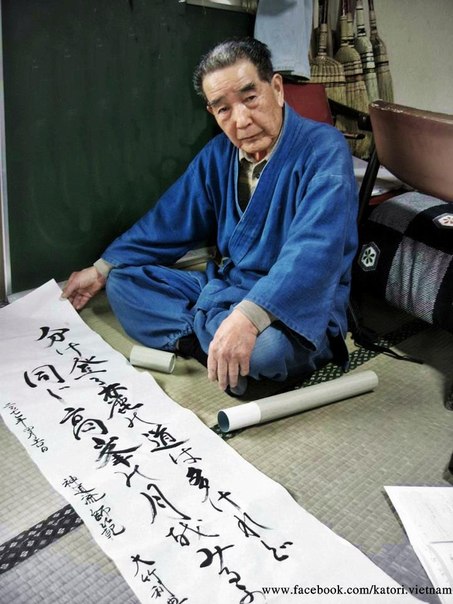 分け登る麓の道は多けれど
同じ高峯の月
神道流師範 大竹利典
www.facebook.com/katori.vietnam